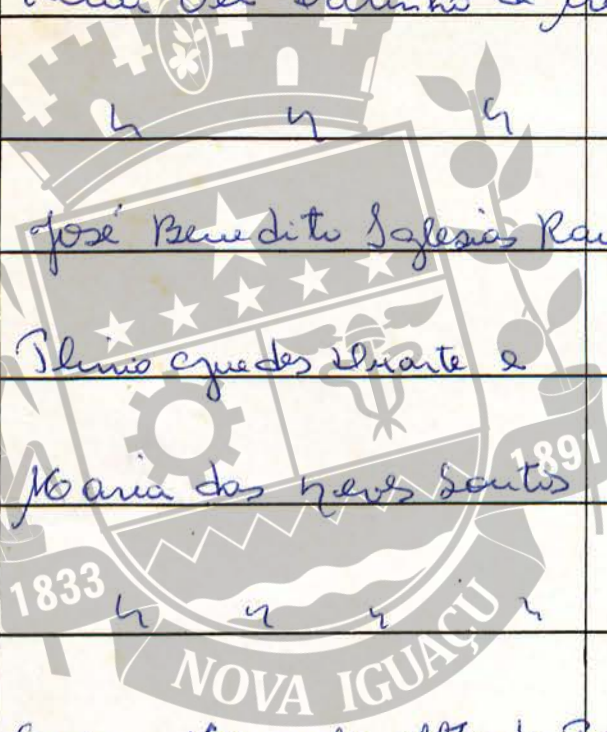 " " "
José Benedito Iglesias
Plinio Guedes Duarte e
1891
Maria das Neves Santos
1833
" " " "
NOVA IGUAÇU